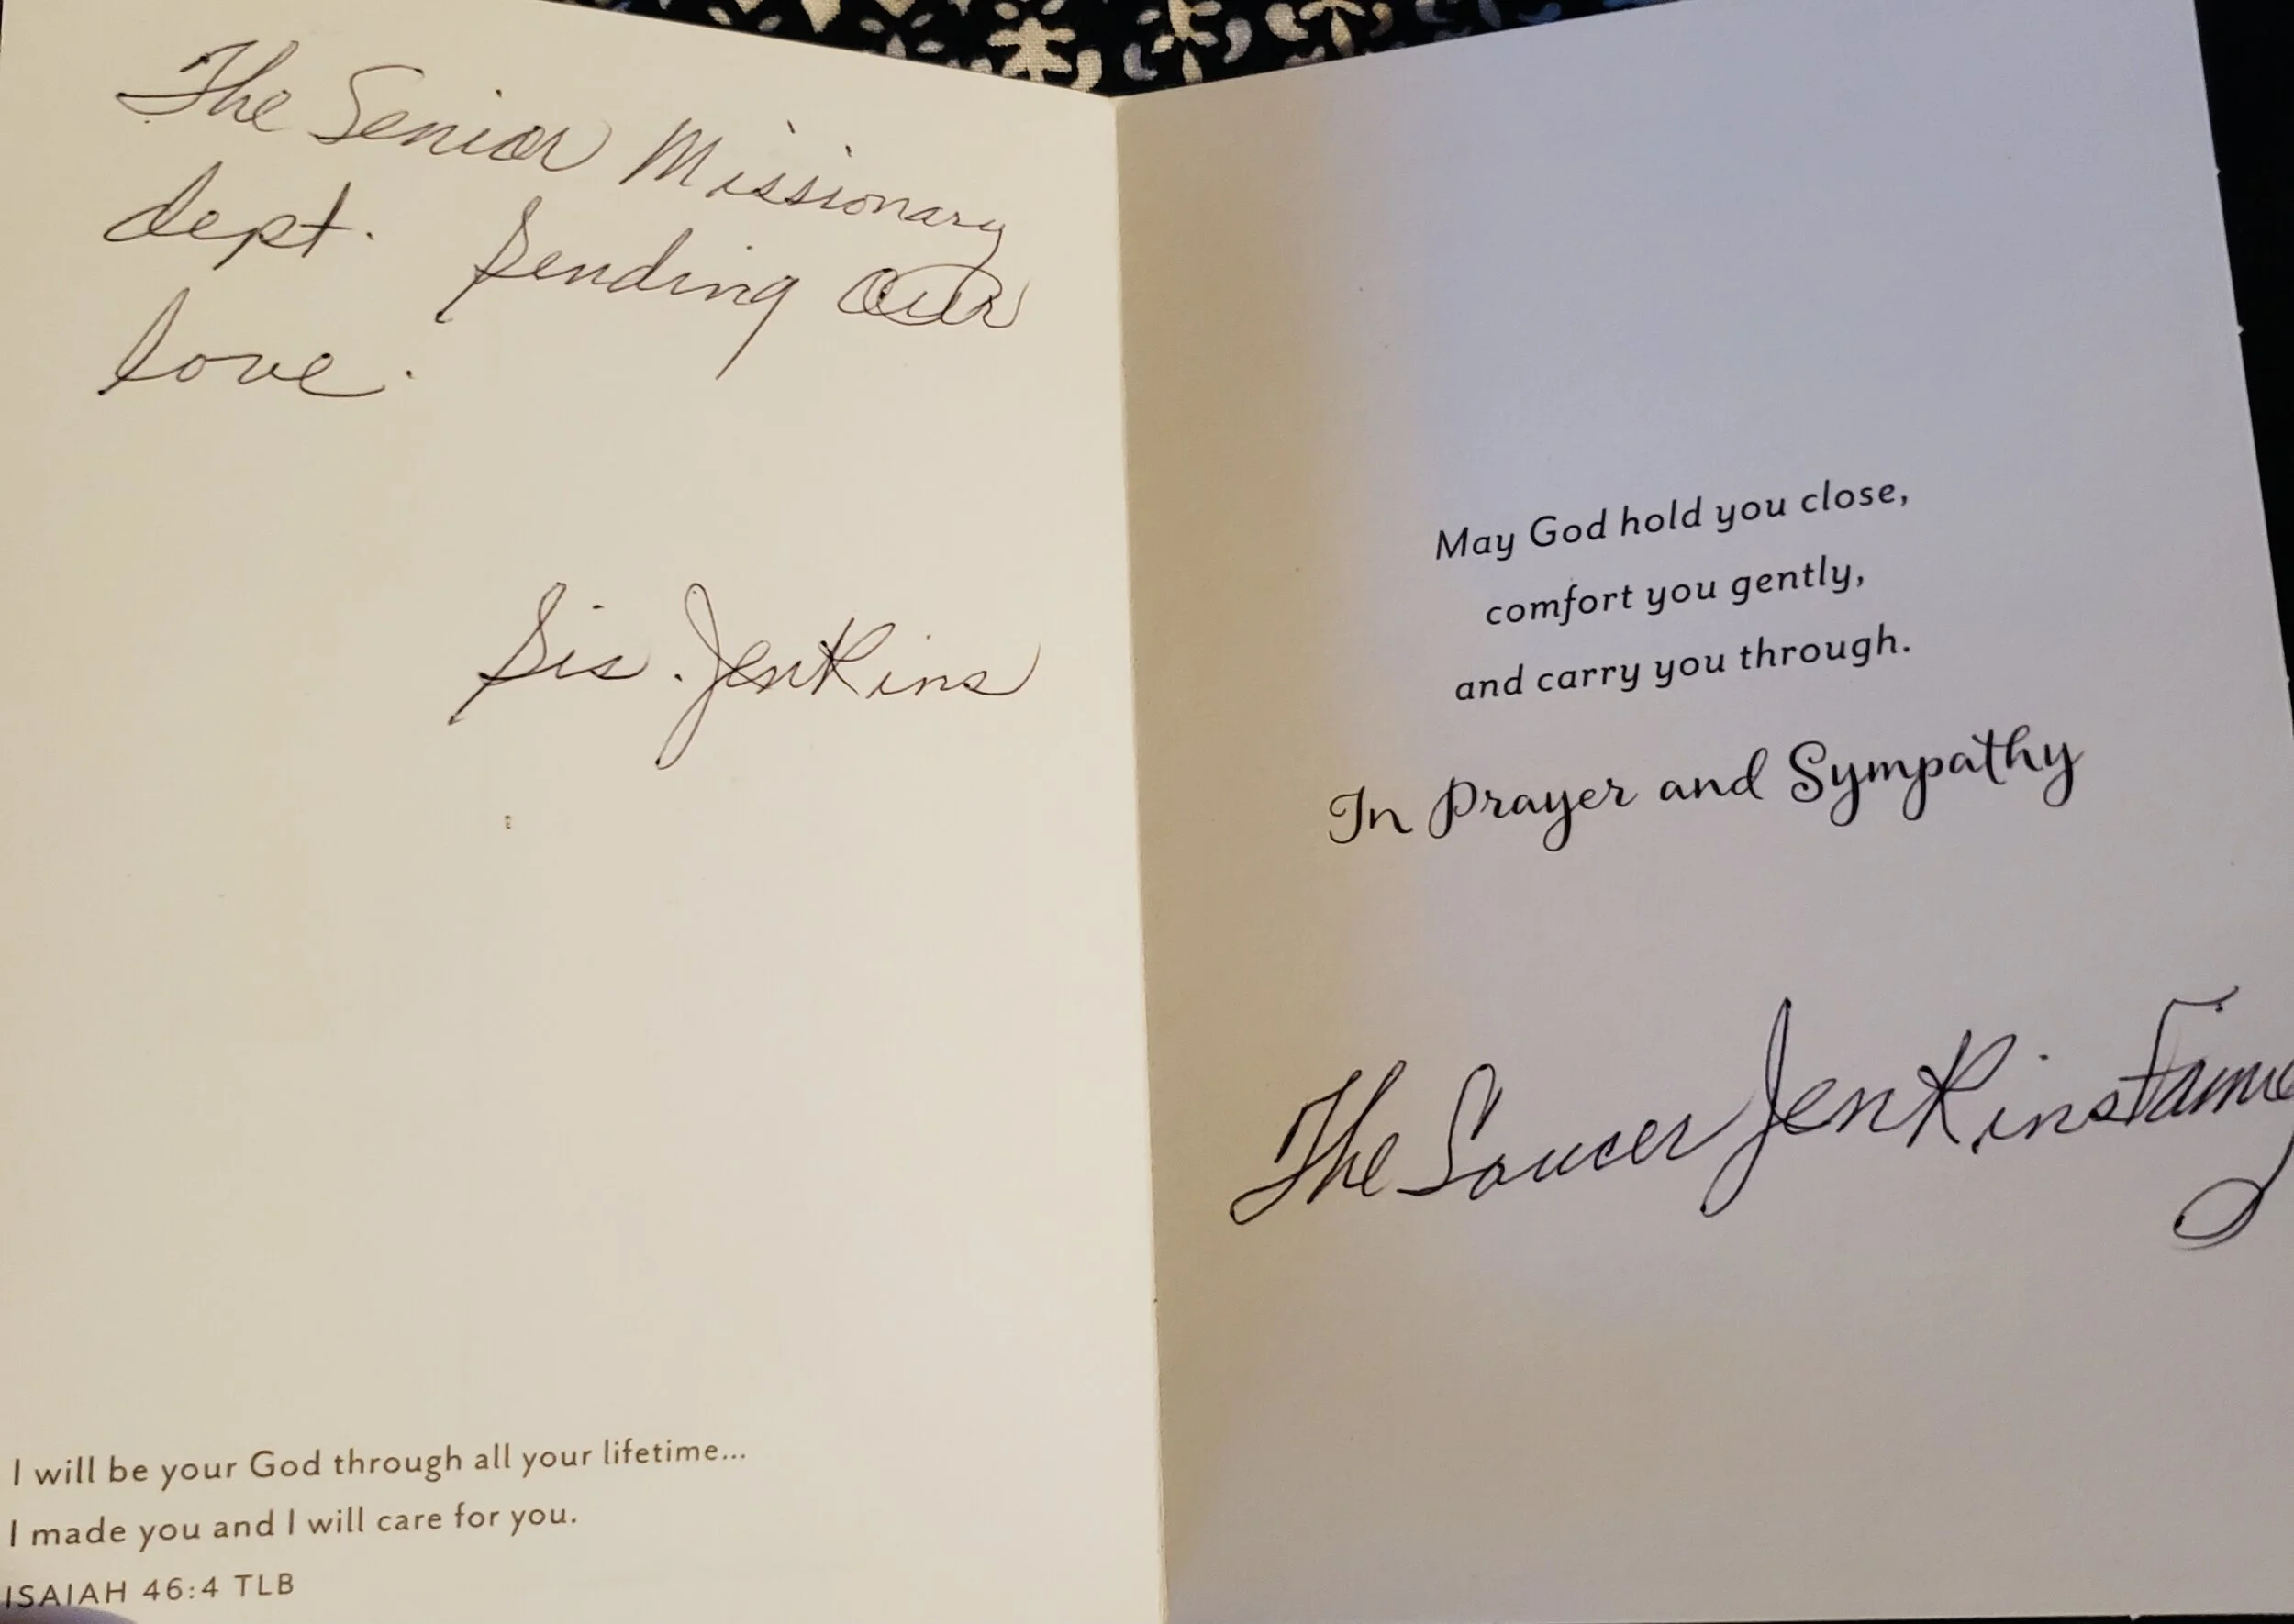 The Senior Missionary
dept. Sending Our
love.
Sis. Jenkins
I will be your God through all your lifetime...
I made you and I will care for you.
ISAIAH 46:4 TLB
May God hold you close,
comfort you gently,
and carry you through.
In Prayer and Sympathy
The Saucer Jenkins Family